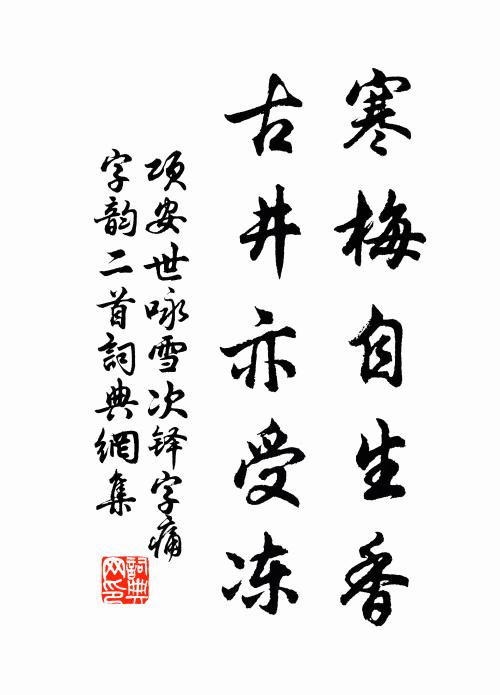 寒梅自生香
古井亦受冻
项安世咏雪次铎字痛
字韵二首詞典網集
詞典网印